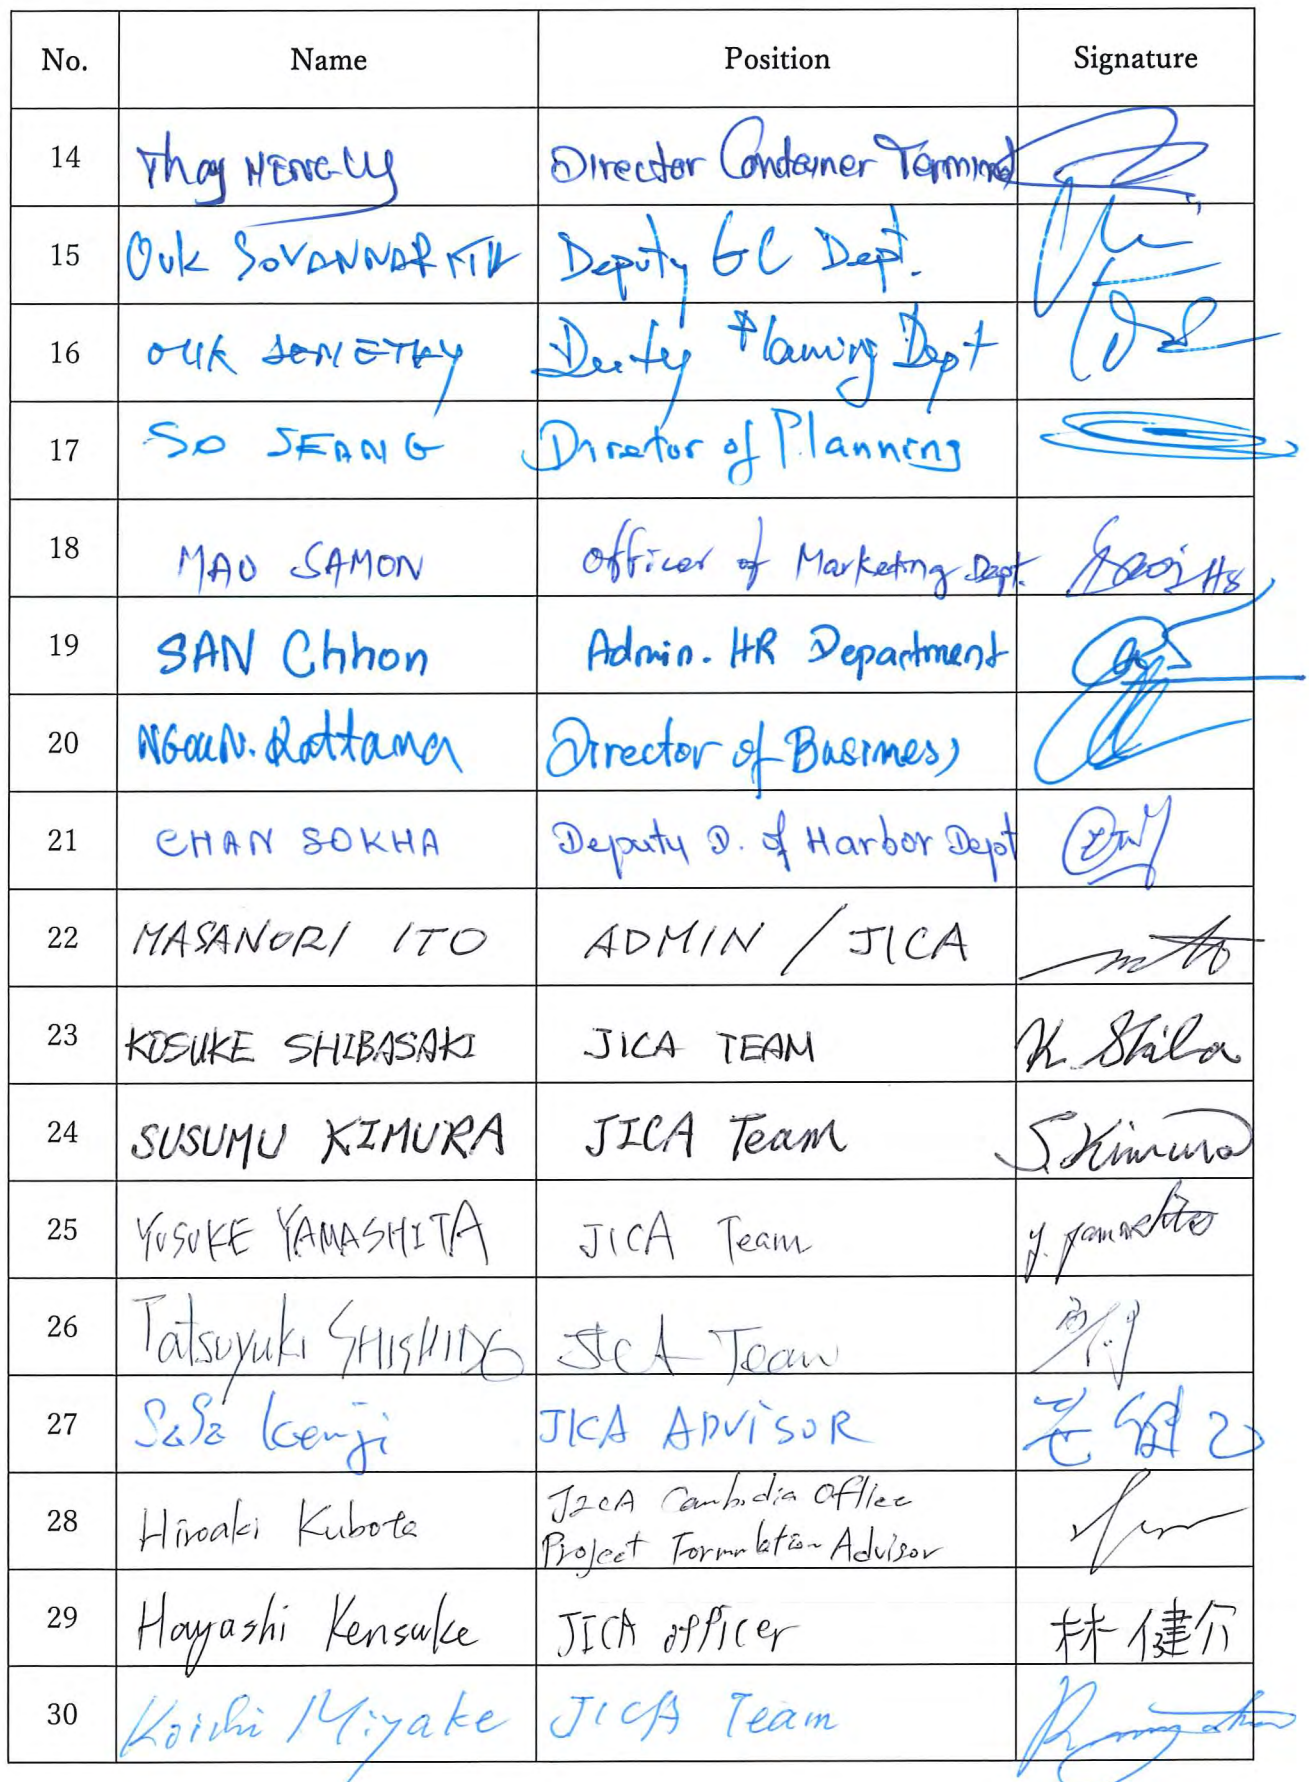 No. Name Position Signature
14 Thay HENG LY Director Container Terminal
15 Ouk SOVANNARITH Deputy GC Dept.
16 OUK Deputy Planning Dept
17 SO SEANG Director of Planning
18 MAO SAMON Officer of Marketing Dept.
19 SAN Chhon Admin. HR Department
20 NGOUN. Rattana Director of Business
21 CHAN SOKHA Deputy D. of Harbor Dept
22 MASANORI ITO ADMIN / JICA
23 KOSUKE SHIBASAKI JICA TEAM K. Shiba
24 SUSUMU KIMURA JICA Team S. Kimura
25 YUSUKE YAMASHITA JICA Team y. yamashita
26 Tatsuyuki SHISHIDO JICA Team
27 SaSa Kenji JICA ADVISOR
28 Hiroaki Kubota JICA Cambodia Office
Project Formulation Advisor
29 Hayashi Kensuke JICA officer 林 健介
30 Koichi Miyake JICA Team